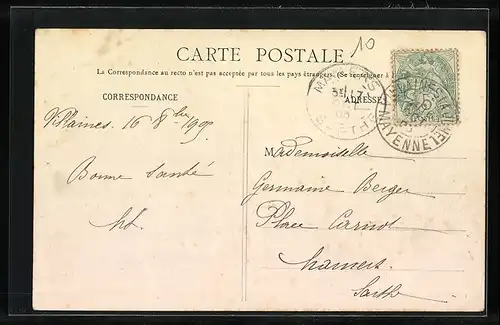 10
CARTE POSTALE
La Correspondance au recto n'est pas acceptée par tous les pays étrangers. (Se renseigner à
CORRESPONDANCE
ADRESSE
MAYENNE
16 8bre 190
Mademoiselle
Bonne Santé
Germaine Berger
Place Carnot
Mamers
Sarthe